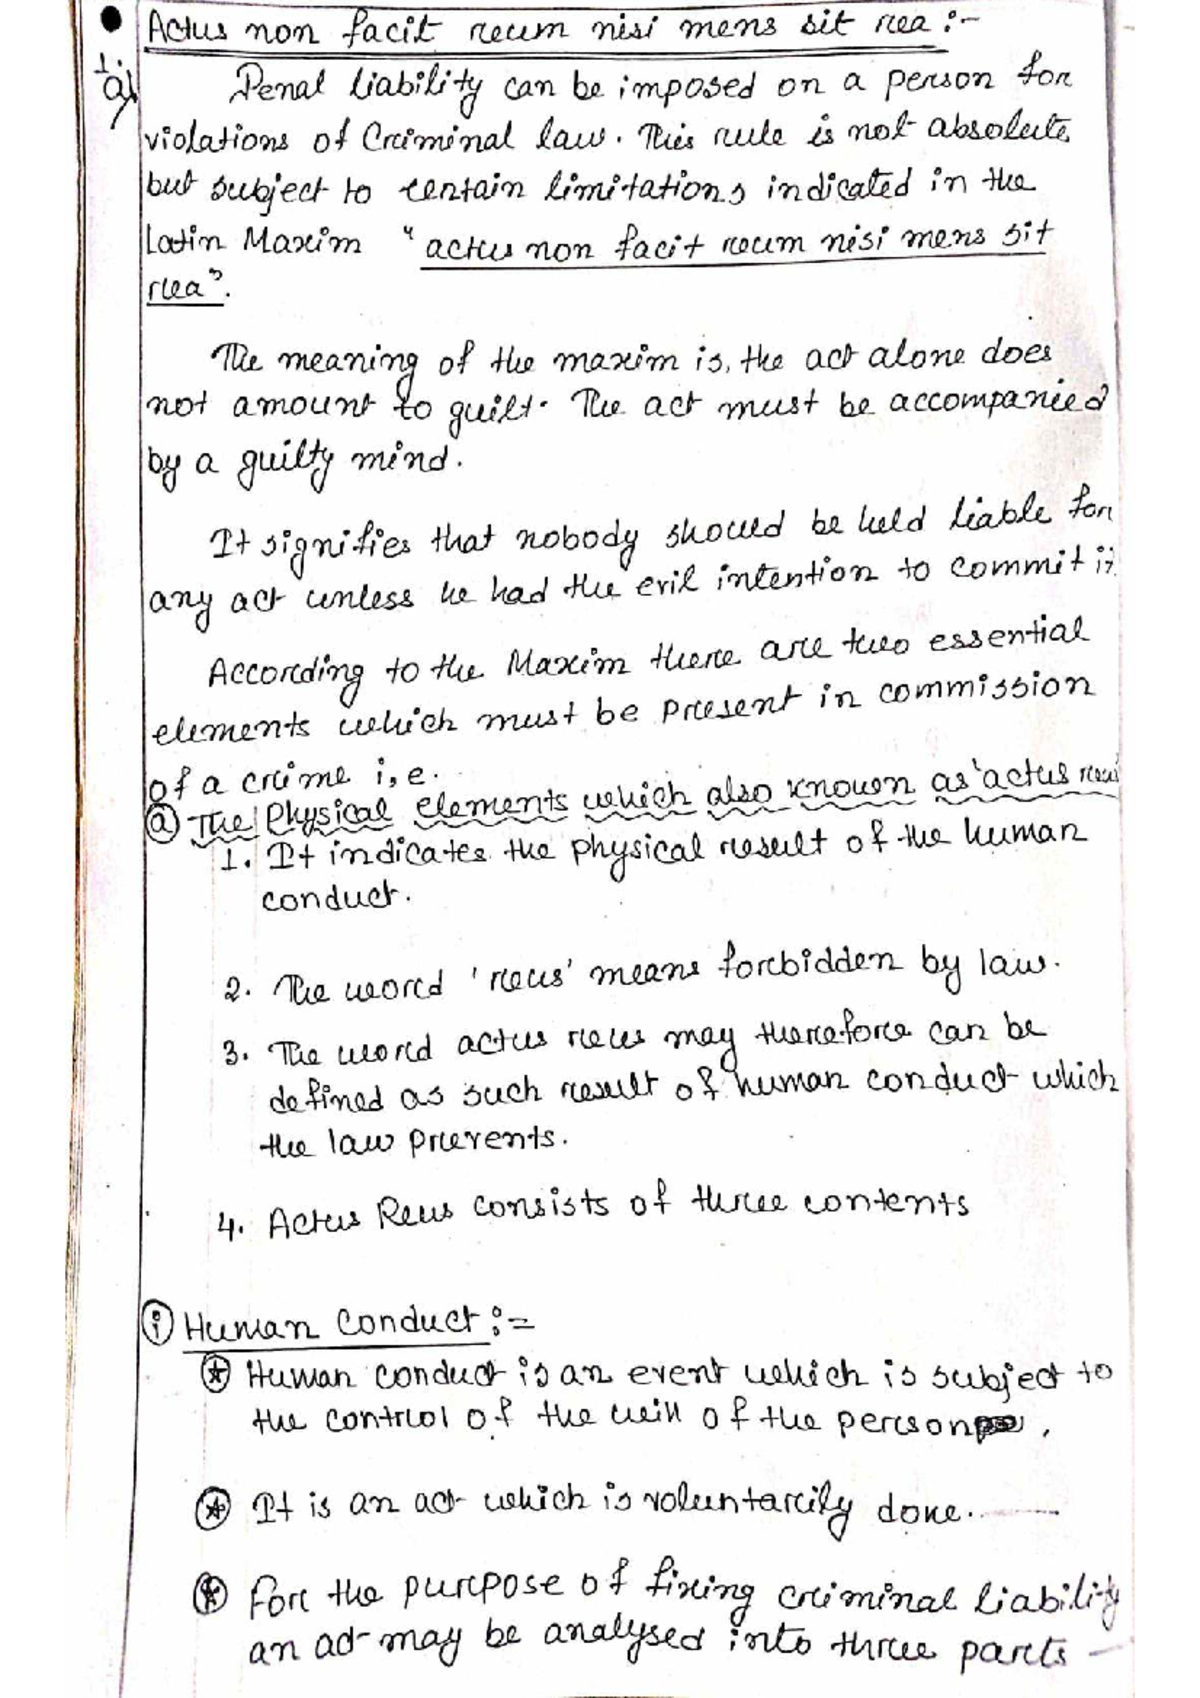 ● Actus non facit reum nisi mens sit rea :-
1.
a) Penal liability can be imposed on a person for
violations of Criminal law. This rule is not absolute
but subject to certain limitations indicated in the
Latin Maxim "actus non facit reum nisi mens sit
rea".
The meaning of the maxim is, the act alone does
not amount to guilt. The act must be accompanied
by a guilty mind.
It signifies that nobody should be held liable for
any act unless he had the evil intention to commit it.
According to the Maxim there are two essential
elements which must be present in commission
of a crime i,e.
ⓐ The Physical elements which also known as 'actus reus'
1. It indicates the physical result of the human
conduct.
2. The word 'reus' means forbidden by law.
3. The word actus reus may therefore can be
defined as such result of human conduct which
the law prevents.
4. Actus Reus consists of three contents
ⓘ Human Conduct :=
⍟ Human conduct is an event which is subject to
the control of the will of the person.
⍟ It is an act which is voluntarily done.
⍟ For the purpose of fixing criminal liability
an act may be analysed into three parts -